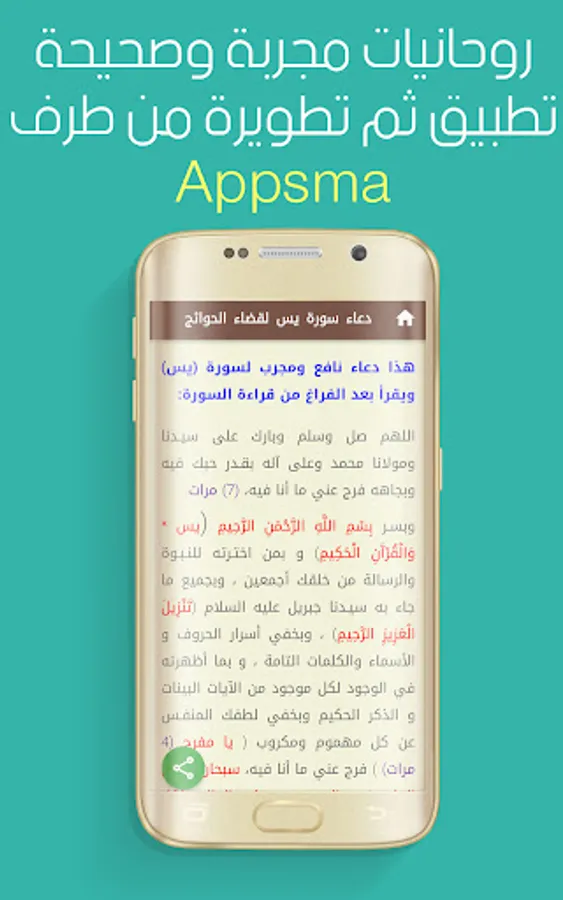 روحانيات مجربة وصحيحة
تطبيق ثم تطويرة من طرف
Appsma
دعاء سورة يس لقضاء الحوائج
هذا دعاء نافع ومجرب لسورة (يس)
ويقرأ بعد الفراغ من قراءة السورة:
اللهم صل وسلم وبارك على سيدنا
ومولانا محمد وعلى آله بقدر حبك فيه
وبجاهه فرج عني ما أنا فيه، (7) مرات
وبسر بِسْمِ اللَّهِ الرَّحْمَنِ الرَّحِيمِ (يس *
وَالْقُرْآنِ الْحَكِيمِ) و بمن اخترته للنبوة
والرسالة من خلقك أجمعين ، وبجميع ما
جاء به سيدنا جبريل عليه السلام (تَنْزِيلَ
الْعَزِيزِ الرَّحِيمِ) ، وبخفي أسرار الحروف و
الأسماء والكلمات التامة ، و بما أظهرته
في الوجود لكل موجود من الآيات البينات
و الذكر الحكيم وبخفي لطفك المنفس
عن كل مهموم ومكروب ( يا مفرح (4
مرات) ) فرج عني ما أنا فيه، سبحان